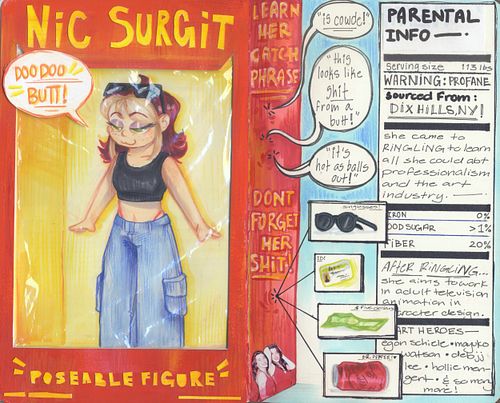 NiC SURGiT
DOO DOO
BUTT!
POSEABLE FIGURE
LEARN
HER
CATCH
PHRASE
DONT
FORGET
HER
SHIT!
"is cowde!"
"this
looks like
shit
from a
butt!"
"it's
hot as balls
out!"
sunglasses!
ID!
DR. PEPPER!
PARENTAL
INFO —.
serving size 113 lbs
WARNING: PROFANE
Sourced From:
DIX HILLS, NY!
she came to
RINGLING to learn
all she could abt
professionalism
and the art
industry.
IRON 0%
OOD SUGAR > 1%
FIBER 20%
AFTER RINGLING...
she aims to work
in adult television
animation in
racter design.
ART HEROES—
egon schiele • mayko
watson • debjj
lee • hollie men-
gert • & so many
more!